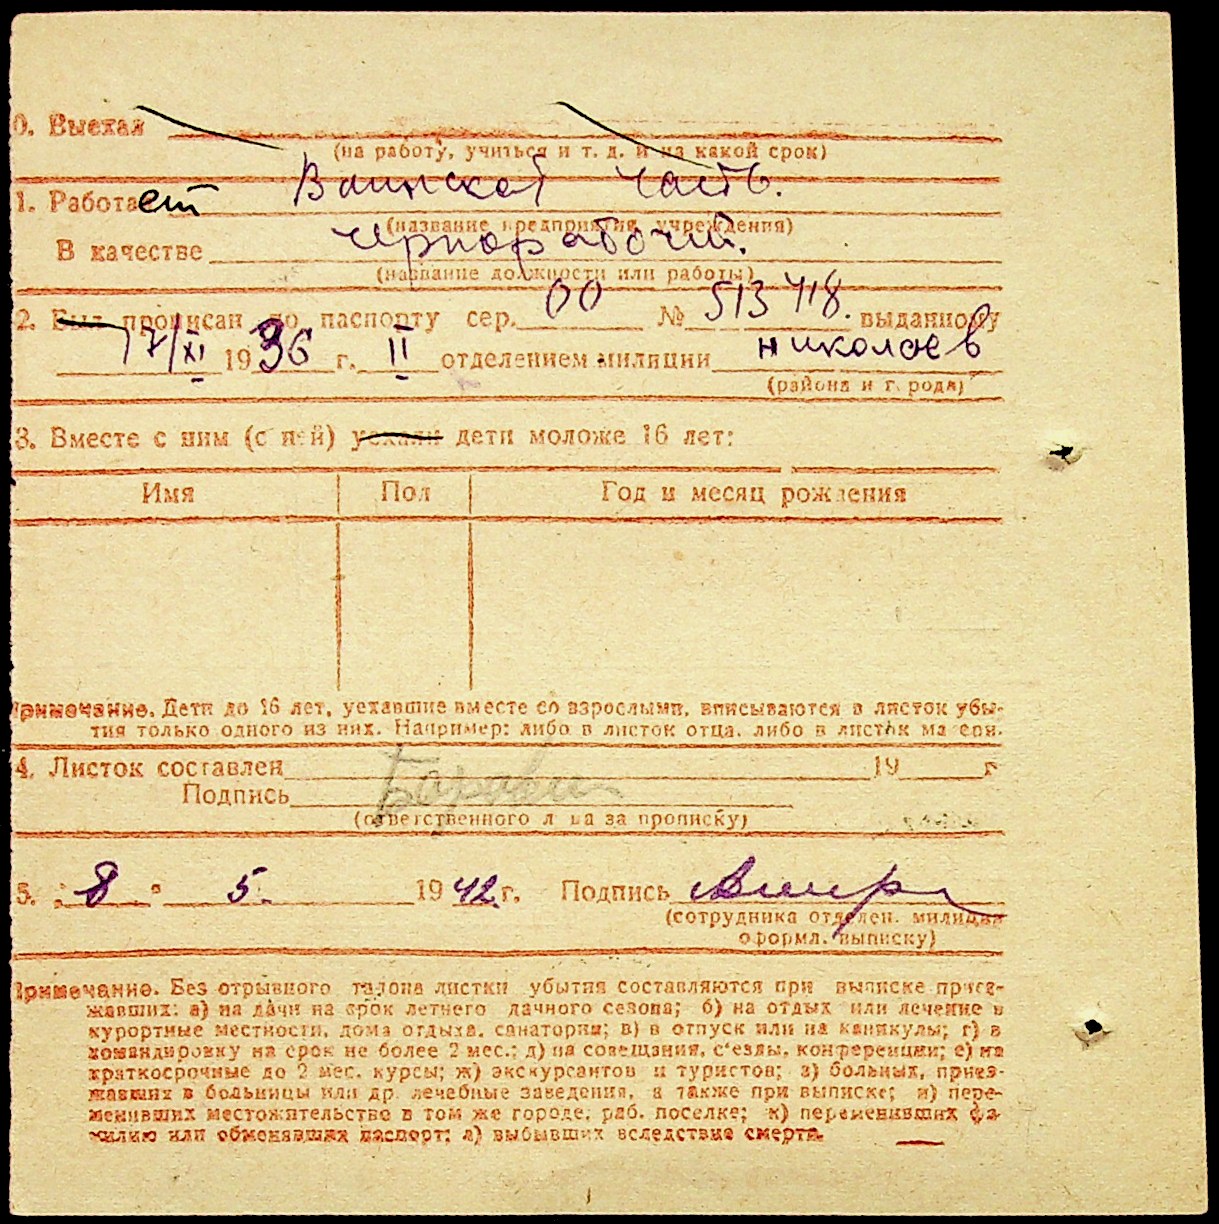 0. Выехал
(на работу, учиться и т. д. и на какой срок)
Воинской часть.
1. Работает
(название предприятия, учреждения)
чернорабочий.
В качестве
(название должности или работы)
2. Был прописан по паспорту сер. 00 № 513418. выданному
17/XI 1936 г. II отделением милиции николаев
(района и города)
3. Вместе с ним (с ней) уехали дети моложе 16 лет:
Имя Пол Год и месяц рождения
Примечание. Дети до 16 лет, уехавшие вместе со взрослыми, вписываются в листок убы-
тия только одного из них. Например: либо в листок отца, либо в листок матери.
4. Листок составлен 19 г
Подпись
(ответственного лица за прописку)
5. "8" 5. 1942 г. Подпись
(сотрудника отделен. милиции
оформл. выписку)
Примечание. Без отрывного талона листки убытия составляются при выписке приез-
жавших: а) на дачи на срок летнего дачного сезона; б) на отдых или лечение в
курортные местности, дома отдыха, санатории; в) в отпуск или на каникулы; г) в
командировку на срок не более 2 мес.; д) на совещания, с'езды, конференции; е) на
краткосрочные до 2 мес. курсы; ж) экскурсантов и туристов; з) больных, приез-
жавших в больницы или др. лечебные заведения, а также при выписке; и) пере-
менивших местожительство в том же городе, раб. поселке; к) переменивших фа-
милию или обменявших паспорт; л) выбывших вследствие смерти.